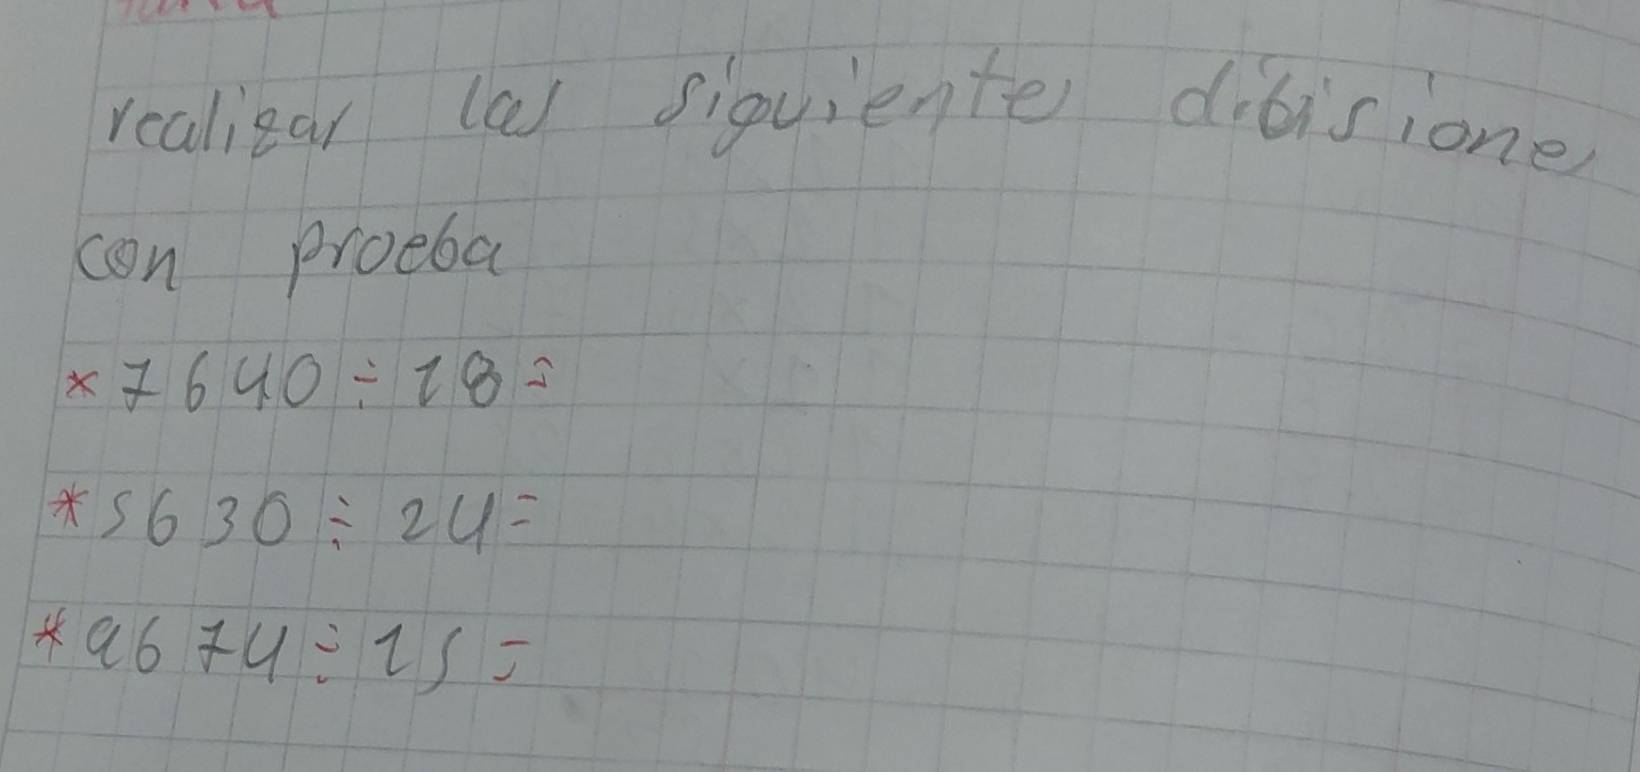 realizar las siguientes dibisiones
con proeba
* 7640 ÷ 18 =
* 5630 ÷ 24 =
* 9674 ÷ 15 =